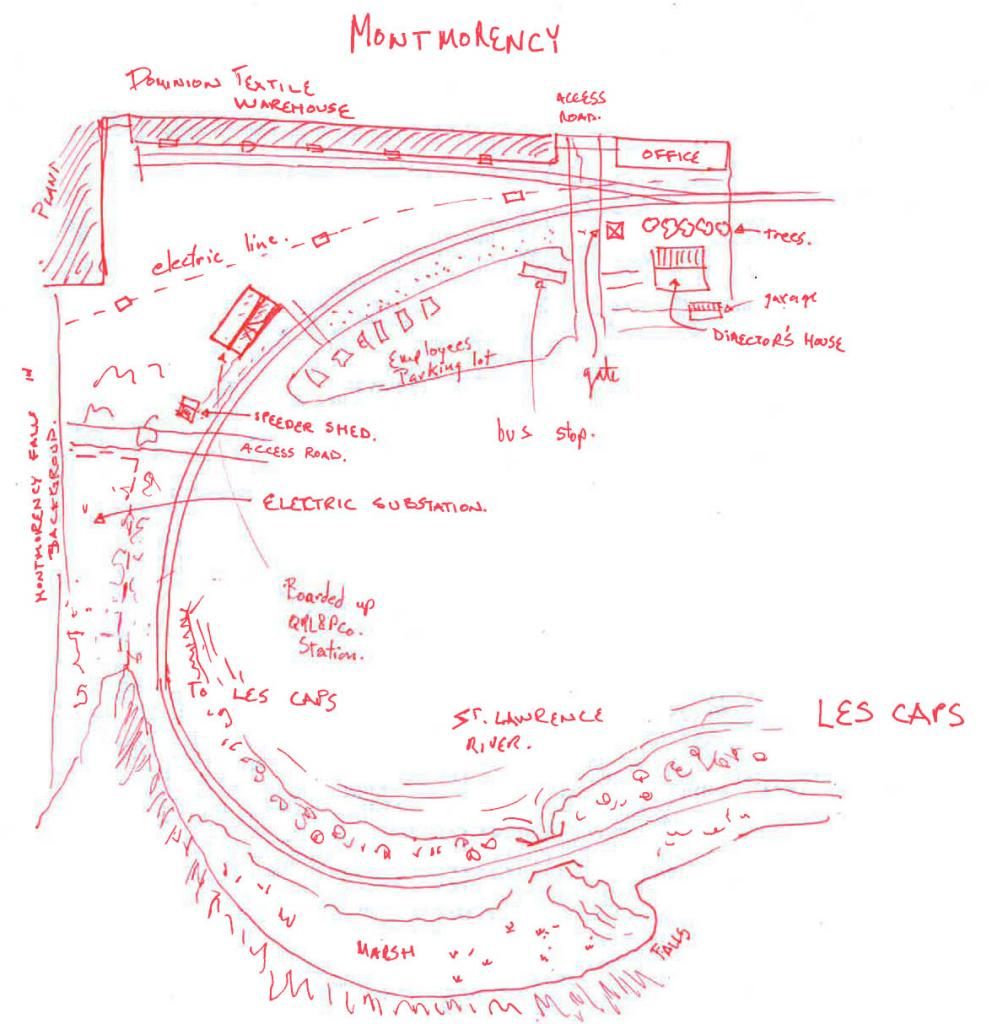 MONTMORENCY
DOMINION TEXTILE
WAREHOUSE
ACCESS
ROAD.
OFFICE
PLANT
trees.
electric line.
garage
DIRECTOR'S HOUSE
Employees
Parking lot
gate
bus stop.
SPEEDER SHED.
ACCESS ROAD.
MONTMORENCY FALLS IN
BACKGROUND.
ELECTRIC SUBSTATION.
Boarded up
QRL&PCo.
Station.
TO LES CAPS
ST. LAWRENCE
RIVER.
LES CAPS
MARSH
FALLS